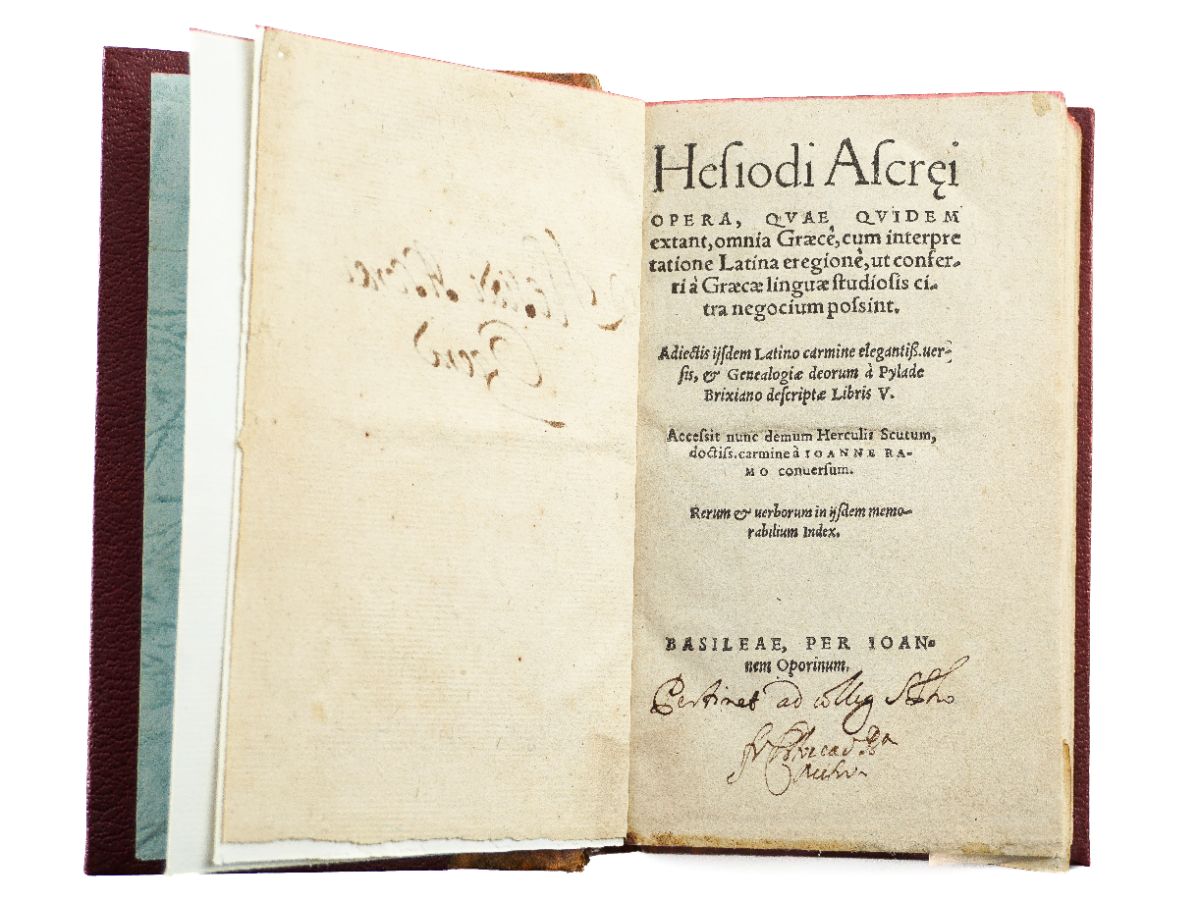 Heſiodi Aſcręi
OPERA, QVAE QVIDEM
extant, omnia Græcè, cum interpre
tatione Latina eregionè, ut confer-
ri à Græcæ linguæ ſtudioſis ci-
tra negocium poſsint.
Adiectis ijſdem Latino carmine elegantiß. uer-
ſis, & Genealogiæ deorum à Pylade
Brixiano deſcriptæ Libris V.
Acceſsit nunc demum Herculis Scutum,
doctiſs. carmine à IOANNE RA-
MO conuerſum.
Rerum & uerborum in ijſdem memo-
rabilium Index.
BASILEAE, PER IOAN-
nem Oporinum.
Pertinet ad collig